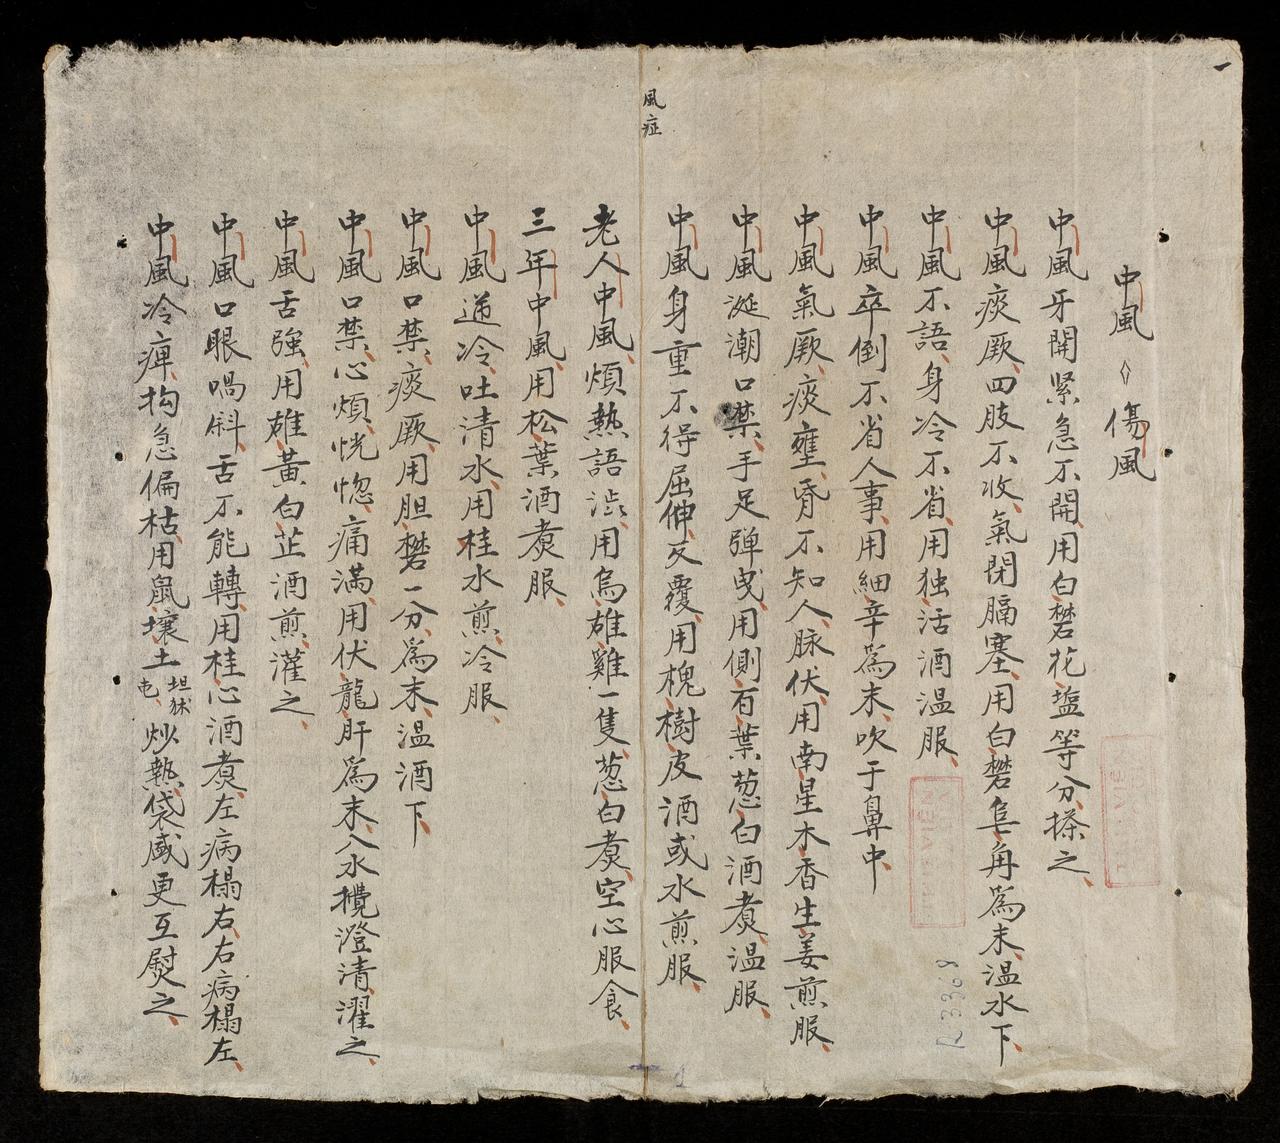 一
中風◇傷風
中風牙關緊急不開用白礬花塩等分搽之
中風痰厥四肢不收氣閉膈塞用白礬皂角為末温水下
中風不語身冷不省用独活酒温服
中風卒倒不省人事用細辛為末吹于鼻中
中風氣厥痰壅昏不知人脉伏用南星木香生姜煎服
中風涎潮口禁手足嚲曳用側百葉葱白酒煮温服
中風身重不得屈伸反覆用槐樹皮酒或水煎服
風症
老人中風煩熱語澁用烏雄雞一隻葱白煮空心服食
三年中風用松葉酒煮服
中風逆冷吐清水用桂水煎冷服
中風口禁痰厥用胆礬一分為末温酒下
中風口禁心煩恍惚痛滿用伏龍肝為末入水攪澄清濯之
中風舌強用雄黄白芷酒煎灌之
中風口眼喎斜舌不能轉用桂心酒煮左病榻右右病榻左
中風冷痺拘急偏枯用鼠壤土坦犾屯炒熱袋盛更互熨之
R.3368